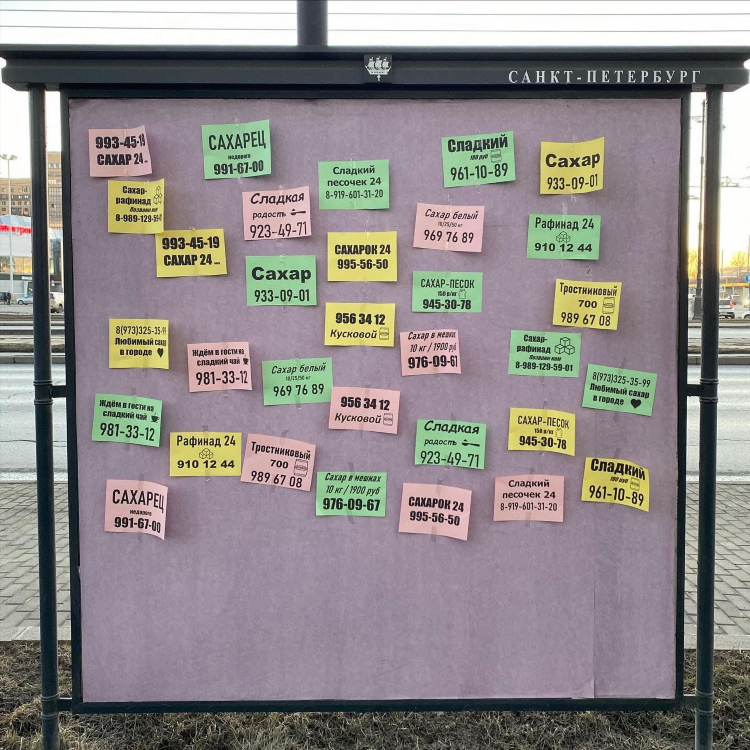 САНКТ-ПЕТЕРБУРГ
993-45-19
САХАР 24
САХАРЕЦ
недорого
991-67-00
Сладкий
песочек 24
8-919-601-31-20
Сладкий
100 руб
961-10-89
Сахар
933-09-01
Сахар-
рафинад
Позвони нам
8-989-129-59-01
Сладкая
радость
923-49-71
Сахар белый
10/25/50 кг
969 76 89
Рафинад 24
910 12 44
993-45-19
САХАР 24
САХАРОК 24
995-56-50
Сахар
933-09-01
САХАР-ПЕСОК
150 р/кг
945-30-78
Тростниковый
700
989 67 08
956 34 12
Кусковой
8(973)325-35-99
Любимый сахар
в городе
Ждём в гости на
сладкий чай
981-33-12
Сахар в мешках
10 кг / 1900 руб
976-09-67
Сахар-
рафинад
Позвони нам
8-989-129-59-01
Сахар белый
10/25/50 кг
969 76 89
8(973)325-35-99
Любимый сахар
в городе
Ждём в гости на
сладкий чай
981-33-12
956 34 12
Кусковой
САХАР-ПЕСОК
150 р/кг
945-30-78
Сладкая
радость
923-49-71
Рафинад 24
910 12 44
Тростниковый
700
989 67 08
Сахар в мешках
10 кг / 1900 руб
976-09-67
Сладкий
100 руб
961-10-89
САХАРЕЦ
недорого
991-67-00
САХАРОК 24
995-56-50
Сладкий
песочек 24
8-919-601-31-20